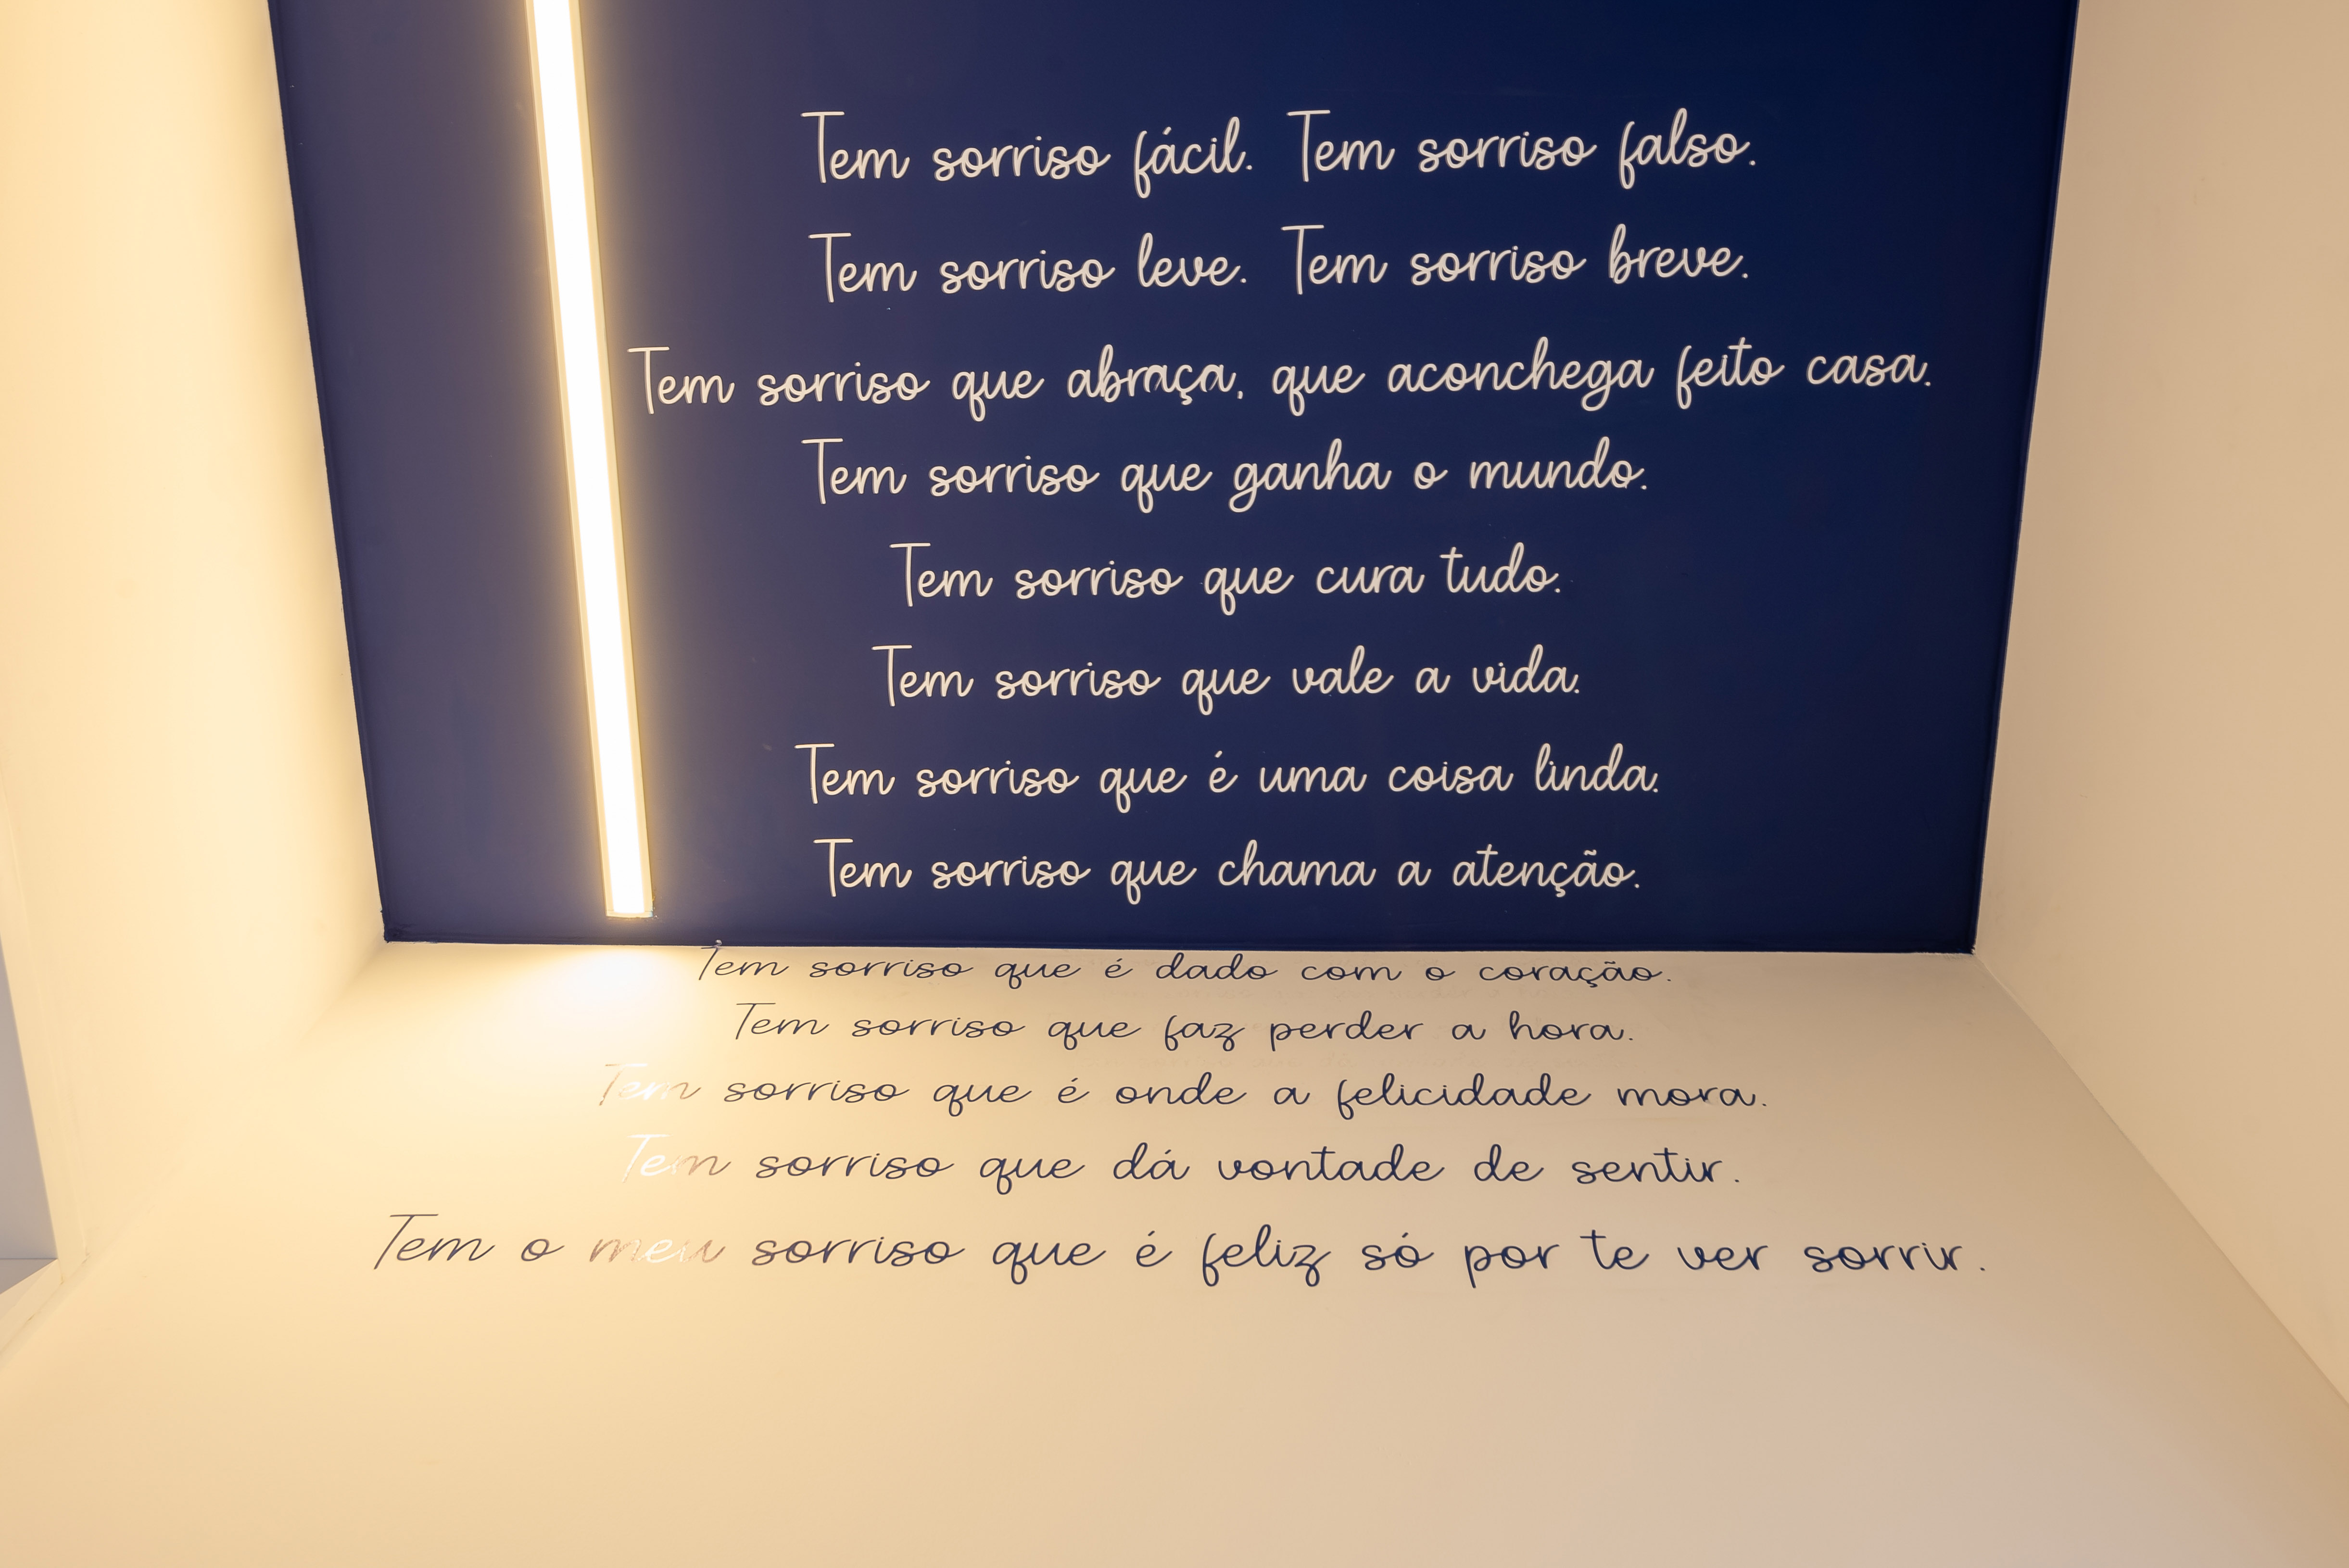 Tem sorriso fácil. Tem sorriso falso.
Tem sorriso leve. Tem sorriso breve.
Tem sorriso que abraça, que aconchega feito casa.
Tem sorriso que ganha o mundo.
Tem sorriso que cura tudo.
Tem sorriso que vale a vida.
Tem sorriso que é uma coisa linda.
Tem sorriso que chama a atenção.
Tem sorriso que é dado com o coração.
Tem sorriso que faz perder a hora.
Tem sorriso que é onde a felicidade mora.
Tem sorriso que dá vontade de sentir.
Tem o meu sorriso que é feliz só por te ver sorrir.